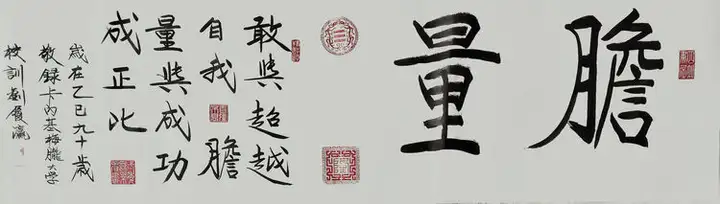 膽量
敢與超越
自我 膽
量與成功
成正比
歲在乙巳九十歲
敬録卡内基梅大学
校訓